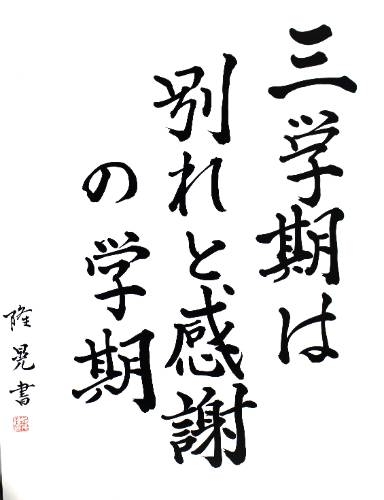 三学期は
別れと感謝
の学期
隆晃書